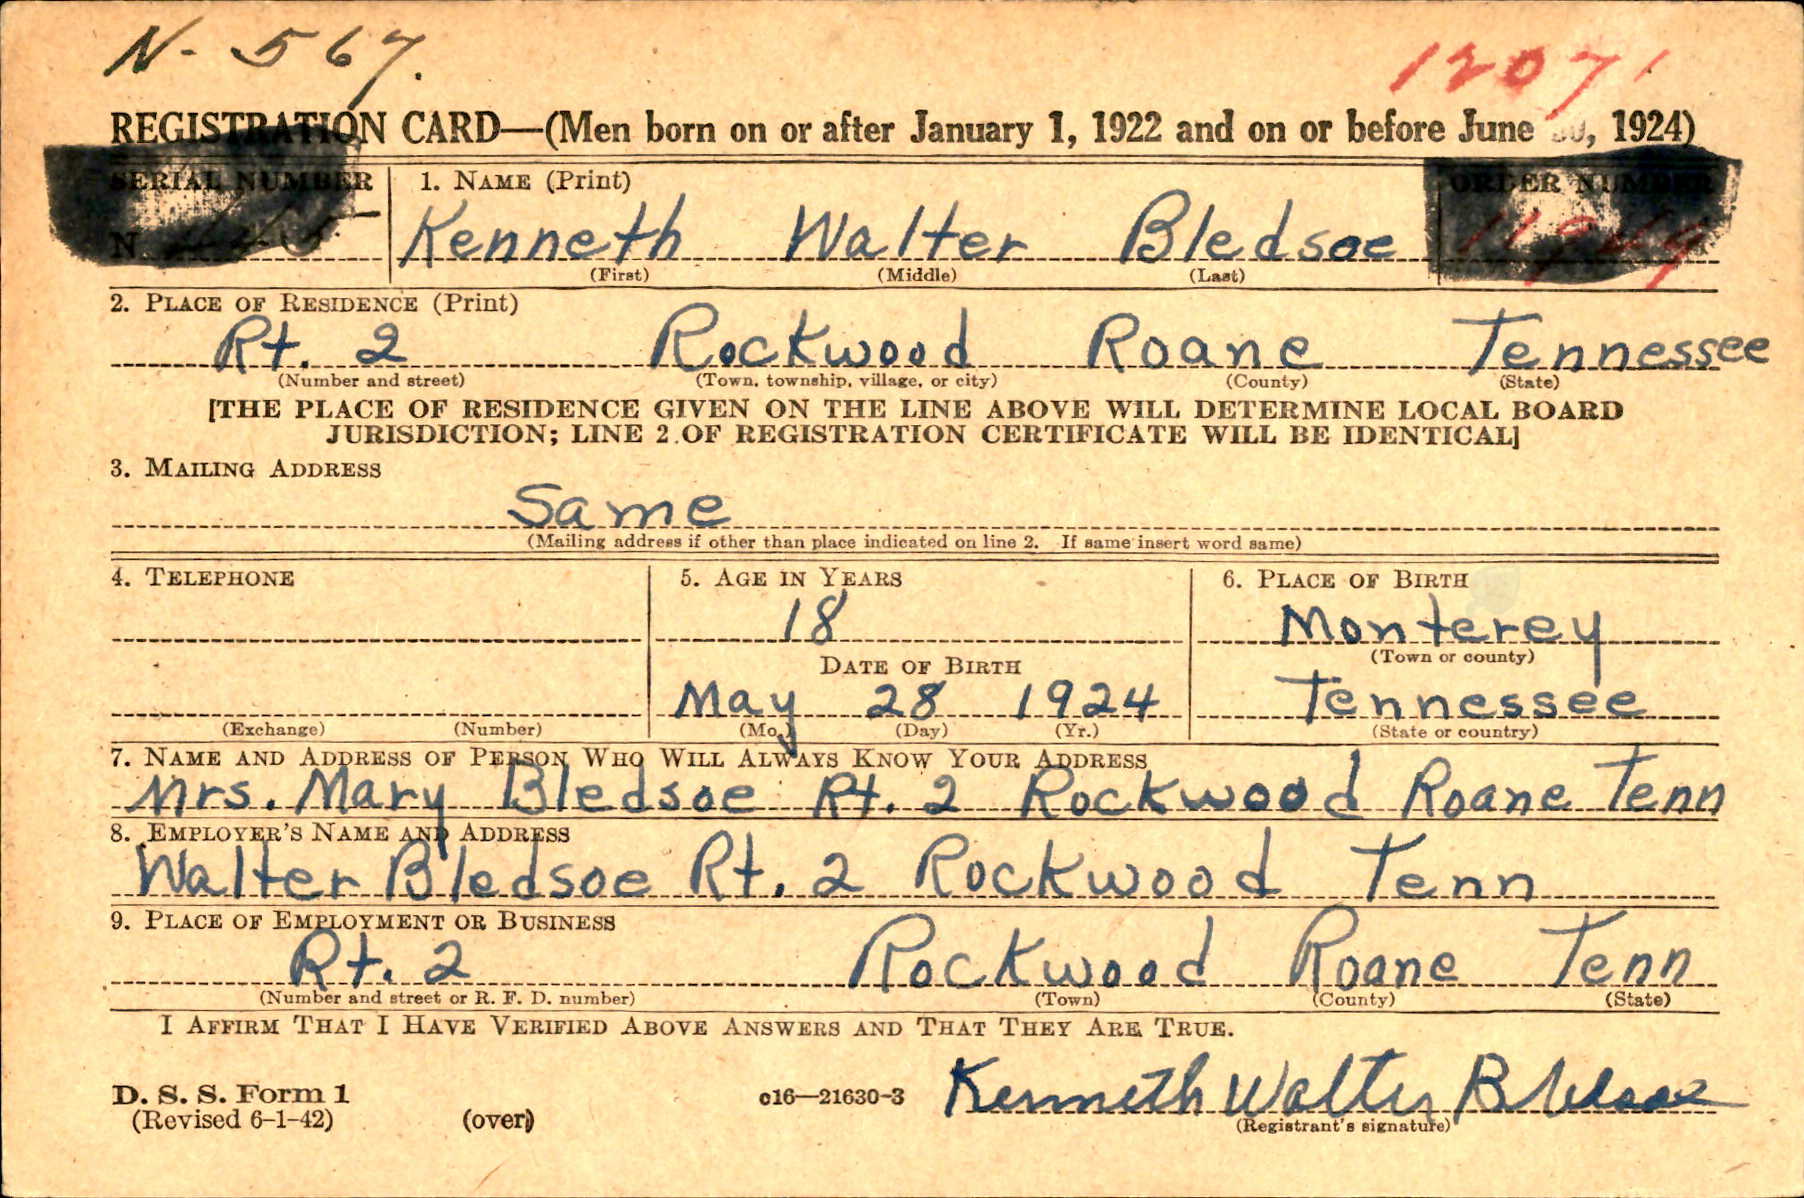 N- 567.
12071
REGISTRATION CARD—(Men born on or after January 1, 1922 and on or before June 30, 1924)
SERIAL NUMBER
1. NAME (Print)
ORDER NUMBER
N
Kenneth Walter Bledsoe
11949
(First) (Middle) (Last)
2. PLACE OF RESIDENCE (Print)
Rt. 2 Rockwood Roane Tennessee
(Number and street) (Town, township, village, or city) (County) (State)
[THE PLACE OF RESIDENCE GIVEN ON THE LINE ABOVE WILL DETERMINE LOCAL BOARD
JURISDICTION; LINE 2 OF REGISTRATION CERTIFICATE WILL BE IDENTICAL]
3. MAILING ADDRESS
Same
(Mailing address if other than place indicated on line 2. If same insert word same)
4. TELEPHONE
5. AGE IN YEARS
6. PLACE OF BIRTH
18
Monterey
(Town or county)
DATE OF BIRTH
May 28 1924
Tennessee
(Exchange) (Number)
(Mo.) (Day) (Yr.)
(State or country)
7. NAME AND ADDRESS OF PERSON WHO WILL ALWAYS KNOW YOUR ADDRESS
Mrs. Mary Bledsoe Rt. 2 Rockwood Roane Tenn
8. EMPLOYER'S NAME AND ADDRESS
Walter Bledsoe Rt. 2 Rockwood Tenn
9. PLACE OF EMPLOYMENT OR BUSINESS
Rt. 2 Rockwood Roane Tenn
(Number and street or R. F. D. number) (Town) (County) (State)
I AFFIRM THAT I HAVE VERIFIED ABOVE ANSWERS AND THAT THEY ARE TRUE.
D. S. S. Form 1
(Revised 6-1-42)
(over)
c16—21630-3
Kenneth Walter Bledsoe
(Registrant's signature)